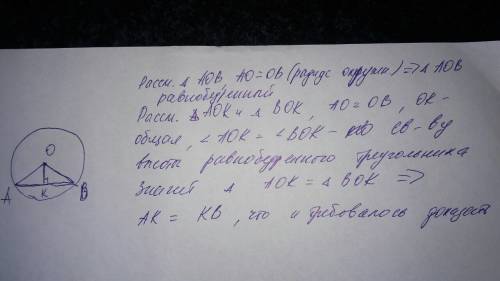 Рассм. Δ AOB, AO=OB (радиус окружн) => Δ AOB
равнобедренный
Рассм. Δ AOK и Δ BOK, AO=OB, OK-
общая, ∠AOK=∠BOK- по св-ву
высоты равнобедренного треугольника
Значит Δ AOK = Δ BOK =>
AK = KB, что и требовалось доказать
O
A K B